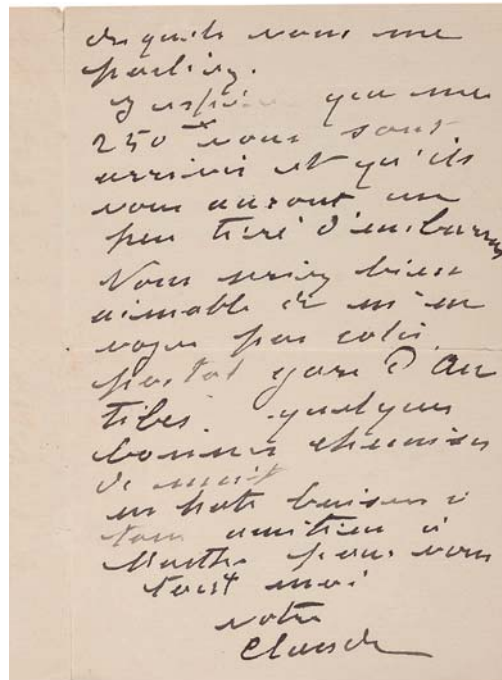 desquels vous me
parliez.
J'espère que mes
250 f vous sont
arrivés et qu'ils
vous auront un
peu tiré d'embarras
Vous seriez bien
aimable de m'en
voyer par colis
postal gare d'An
tibes quelques
bonnes chemises
de nuit
en hâte baisers à
tous amitiés à
Marthe pour vous
tout moi
votre
Claude